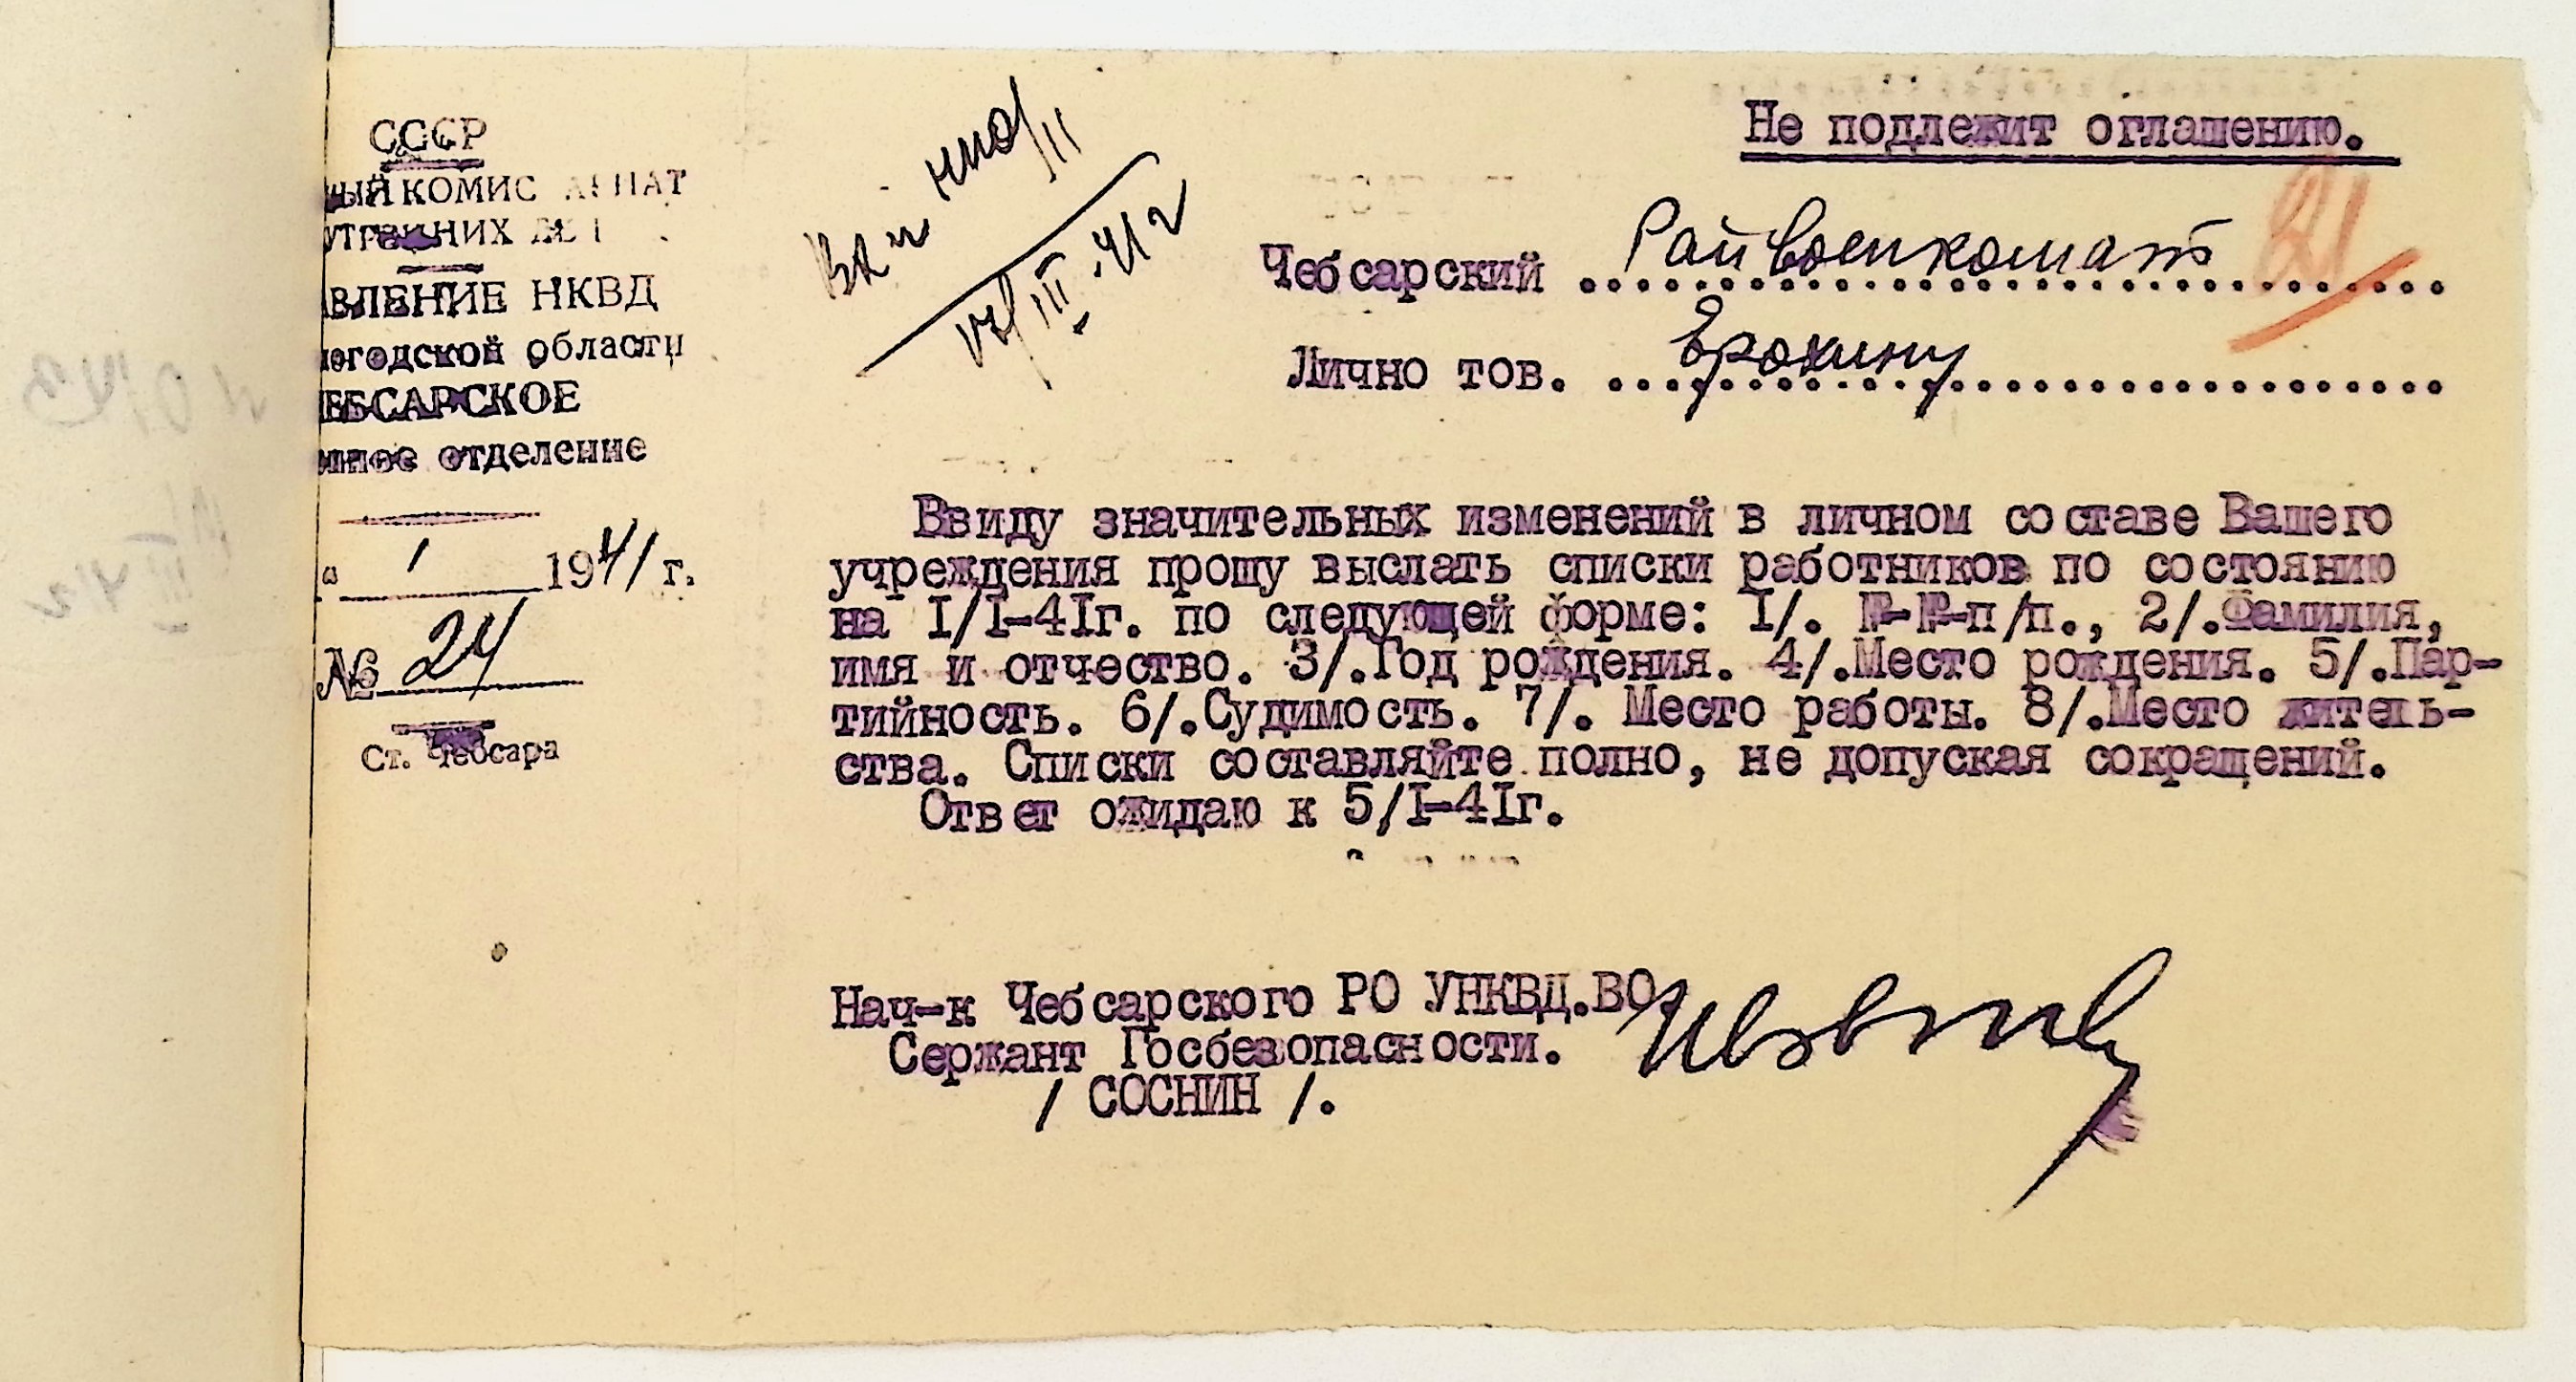 СССР
ЫЙ КОМИС АРИАТ
УТРЕННИХ ДЕЛ
ВЛЕНИЕ НКВД
логодской области
ЕБСАРСКОЕ
нное отделение
" 1 1941 г.
№ 24
Ст. Чебсара
III-41г
Не подлежит оглашению.
Чебсарский Райвоенкомат
Лично тов. Ерохину
Ввиду значительных изменений в личном составе Вашего
учреждения прошу выслать списки работников по состоянию
на I/I-4Iг. по следующей форме: I/. №-№-п/п., 2/.Фамилия,
имя и отчество. 3/.Год рождения. 4/.Место рождения. 5/.Пар-
тийность. 6/.Судимость. 7/. Место работы. 8/.Место житель-
ства. Списки составляйте полно, не допуская сокращений.
Ответ ожидаю к 5/I-4Iг.
Нач-к Чебсарского РО УНКВД.ВО.
Сержант Госбезопасности.
/ СОСНИН /.